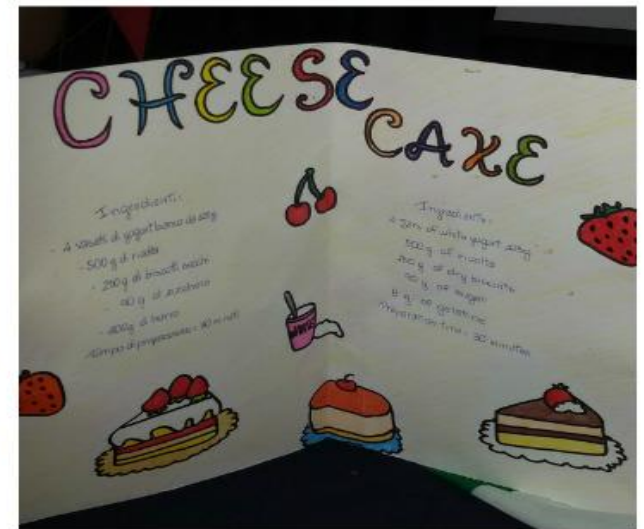 CHEESE
CAKE
Ingredienti:
- 4 vasetti di yogurt bianco da 125g
- 500 g di ricotta
- 250g di biscotti secchi
- 90 g di zucchero
- 100g di burro
Tempo di preparazione: 30 minuti
Ingredients:
4 jars of white yogurt 125g
500g of ricotta
250 g of dry biscuits
90 g of sugar
8 g of gelatine
Preparation time: 30 minutes